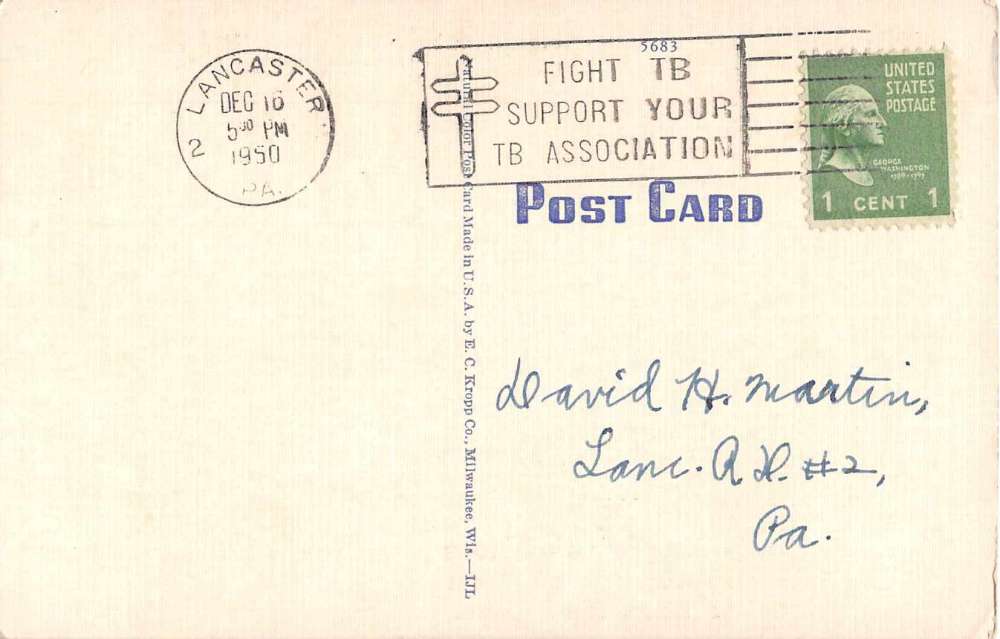 LANCASTER
DEC 16
5 30 PM
1950
2
PA.
5683
FIGHT TB
SUPPORT YOUR
TB ASSOCIATION
UNITED
STATES
POSTAGE
GEORGE
WASHINGTON
1 CENT 1
POST CARD
Natural Color Post Card Made in U.S.A. by E. C. Kropp Co., Milwaukee, Wis.—IJL
David H. Martin,
Lanc. R D. #2,
Pa.